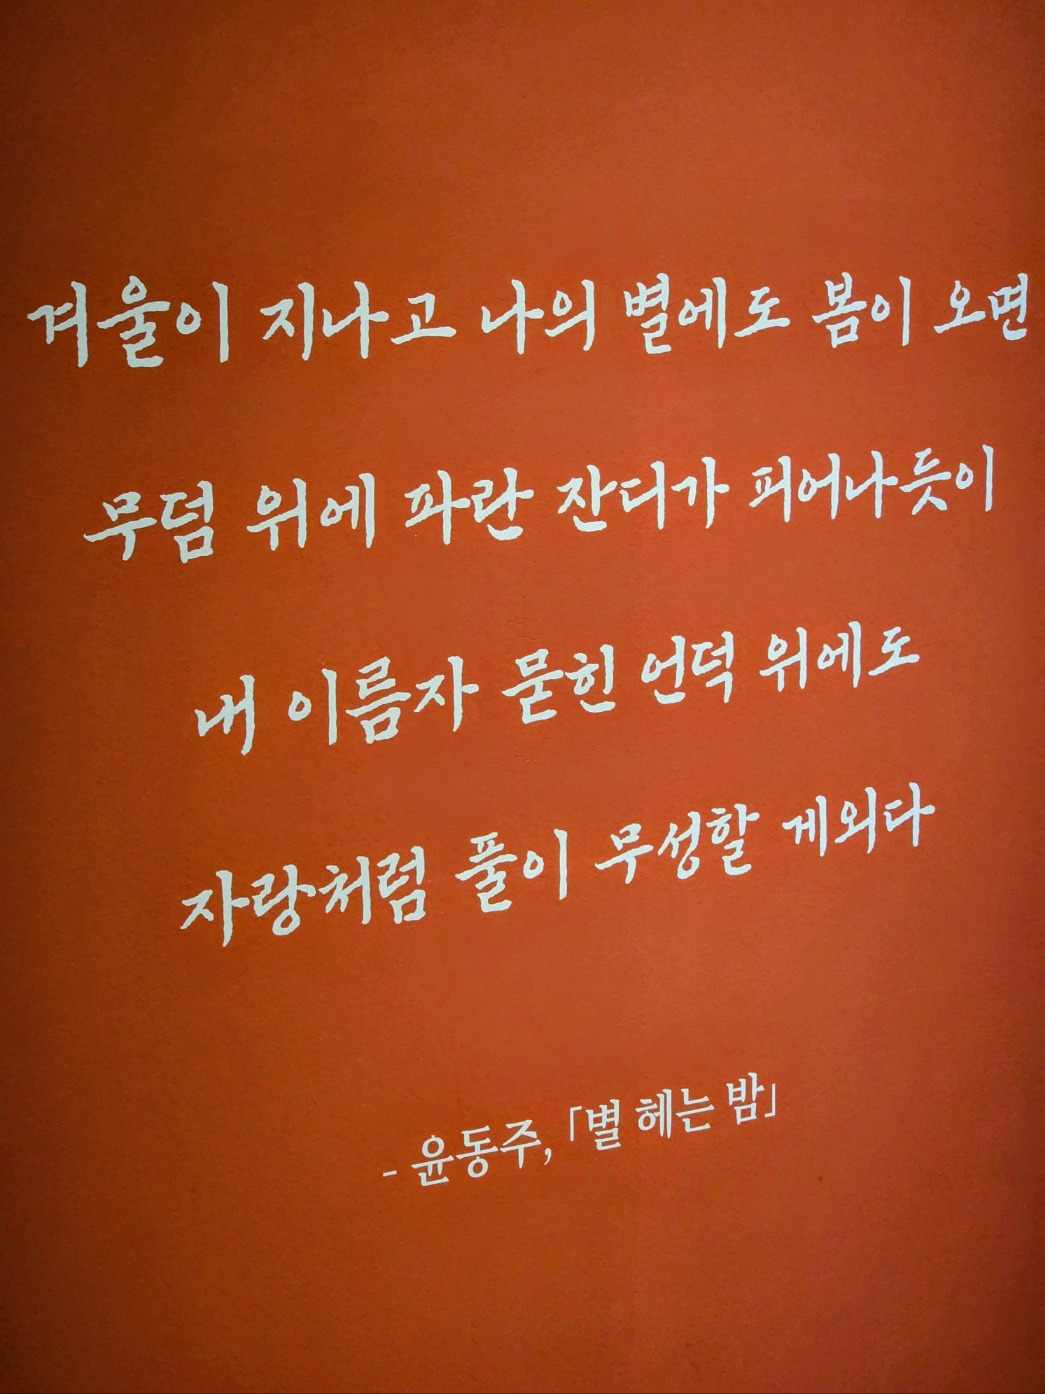 겨울이 지나고 나의 별에도 봄이 오면
무덤 위에 파란 잔디가 피어나듯이
내 이름자 묻힌 언덕 위에도
자랑처럼 풀이 무성할 게외다
- 윤동주, 「별 헤는 밤」